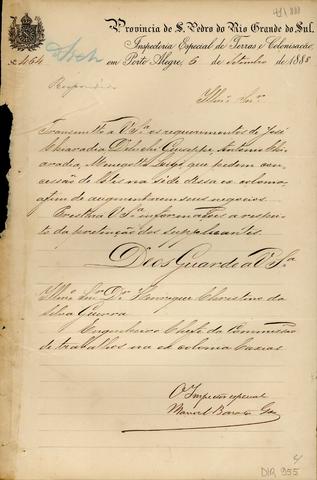 Provincia de S. Pedro do Rio Grande do Sul.
Inspectoria Especial de Terras e Colonisação
em Porto Alegre, 5 de Setembro de 1885
Nº 464
Respondido
Illmo. Snr.
Transmitto a V.Sª os requerimentos de José
Chiaradia, Giuseppe, Antonio Chia-
radia, que pedem con-
cessão de lotes na séde dessa ex colonia,
afim de augmentarem seus negocios.
Prestará V.Sª informações a respei-
to da pretenção dos supplicantes.
Deos Guarde a V.Sª
Illmo. Snr. Dr. Henrique Christino da
Silva Guerra
Engenheiro Chefe da Commissão
de trabalhos na ex colonia Caxias
O Inspector especial
Manoel
4
DIR 955